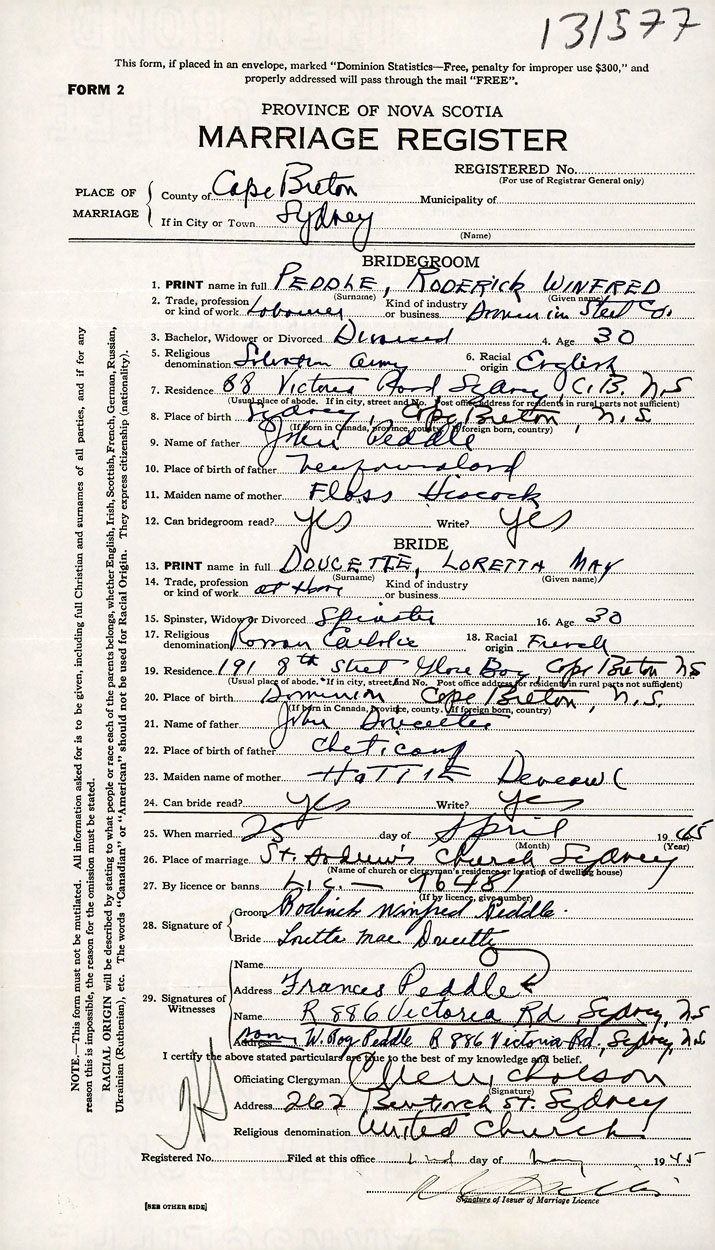 131577
This form, if placed in an envelope, marked "Dominion Statistics—Free, penalty for improper use $300," and
properly addressed will pass through the mail "FREE".
FORM 2
PROVINCE OF NOVA SCOTIA
MARRIAGE REGISTER
REGISTERED No.
(For use of Registrar General only)
PLACE OF MARRIAGE
County of Cape Breton Municipality of
If in City or Town Sydney
(Name)
BRIDEGROOM
1. PRINT name in full PEDDLE, RODERICK WINFRED
(Surname) (Given name)
2. Trade, profession or kind of work Labourer Kind of industry or business Domin in Steel Co.
3. Bachelor, Widower or Divorced Divorced 4. Age 30
5. Religious denomination Salvation Army 6. Racial origin English
7. Residence 88 Victoria Road Sydney, C.B. N.S
(Usual place of abode. If in city, street and No. Post office address for residents in rural parts not sufficient)
8. Place of birth Sydney, Cape Breton, N.S.
(If Born in Canada, province, county. If foreign born, country)
9. Name of father John Peddle
10. Place of birth of father Newfoundland
11. Maiden name of mother Floss Hiscock
12. Can bridegroom read? yes Write? yes
BRIDE
13. PRINT name in full DOUCETTE, LORETTA MAY
(Surname) (Given name)
14. Trade, profession or kind of work at Home Kind of industry or business
15. Spinster, Widow or Divorced Spinster 16. Age 30
17. Religious denomination Roman Catholic 18. Racial origin French
19. Residence 191 8th Street Glace Bay, Cape Breton NS
(Usual place of abode. If in city, street and No. Post office address for residents in rural parts not sufficient)
20. Place of birth Dominion Cape Breton, N.S.
(If born in Canada, Province, county. If foreign born, country)
21. Name of father John Doucette
22. Place of birth of father Cheticamp
23. Maiden name of mother HATTIE Deveau
24. Can bride read? yes Write? yes
25. When married 25 day of April 1945
(Month) (Year)
26. Place of marriage St. Andrew's Church Sydney
(Name of church or clergyman's residence or location of dwelling house)
27. By licence or banns Lic. — 76481
(If by licence, give number)
28. Signature of
Groom Roderick Winfred Peddle.
Bride Loretta Mae Doucette
29. Signatures of Witnesses
Name
Address Frances Peddle
Name R 886 Victoria Rd, Sydney, NS
Address W. Roy Peddle R 886 Victoria Rd., Sydney, N.S
I certify the above stated particulars are true to the best of my knowledge and belief.
Officiating Clergyman
(Signature)
Address 262 St. Sydney
Religious denomination United Church
Registered No. Filed at this office day of May 1945
Signature of Issuer of Marriage Licence
[SEE OTHER SIDE]
NOTE.—This form must not be mutilated. All information asked for is to be given, including full Christian and surnames of all parties, and if for any
reason this is impossible, the reason for the omission must be stated.
RACIAL ORIGIN will be described by stating to what people or race each of the parents belongs, whether English, Irish, Scottish, French, German, Russian,
Ukrainian (Ruthenian), etc. The words "Canadian" or "American" should not be used for Racial Origin. They express citizenship (nationality).